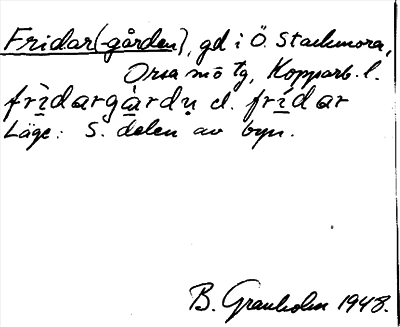 Fridar(-gården), gd i Ö. Stackmora,
Orsa sn o tg, Kopparb. l.
frìdargàrdn̥ el. frídar
Läge: S. delen av byn.
B. Granholm 1948.